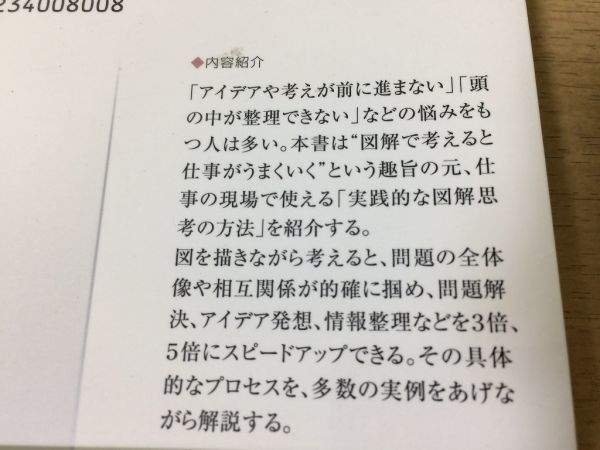 234008008
◆内容紹介
「アイデアや考えが前に進まない」「頭
の中が整理できない」などの悩みをも
つ人は多い。本書は“図解で考えると
仕事がうまくいく”という趣旨の元、仕
事の現場で使える「実践的な図解思
考の方法」を紹介する。
図を描きながら考えると、問題の全体
像や相互関係が的確に掴め、問題解
決、アイデア発想、情報整理などを3倍、
5倍にスピードアップできる。その具体
的なプロセスを、多数の実例をあげな
がら解説する。